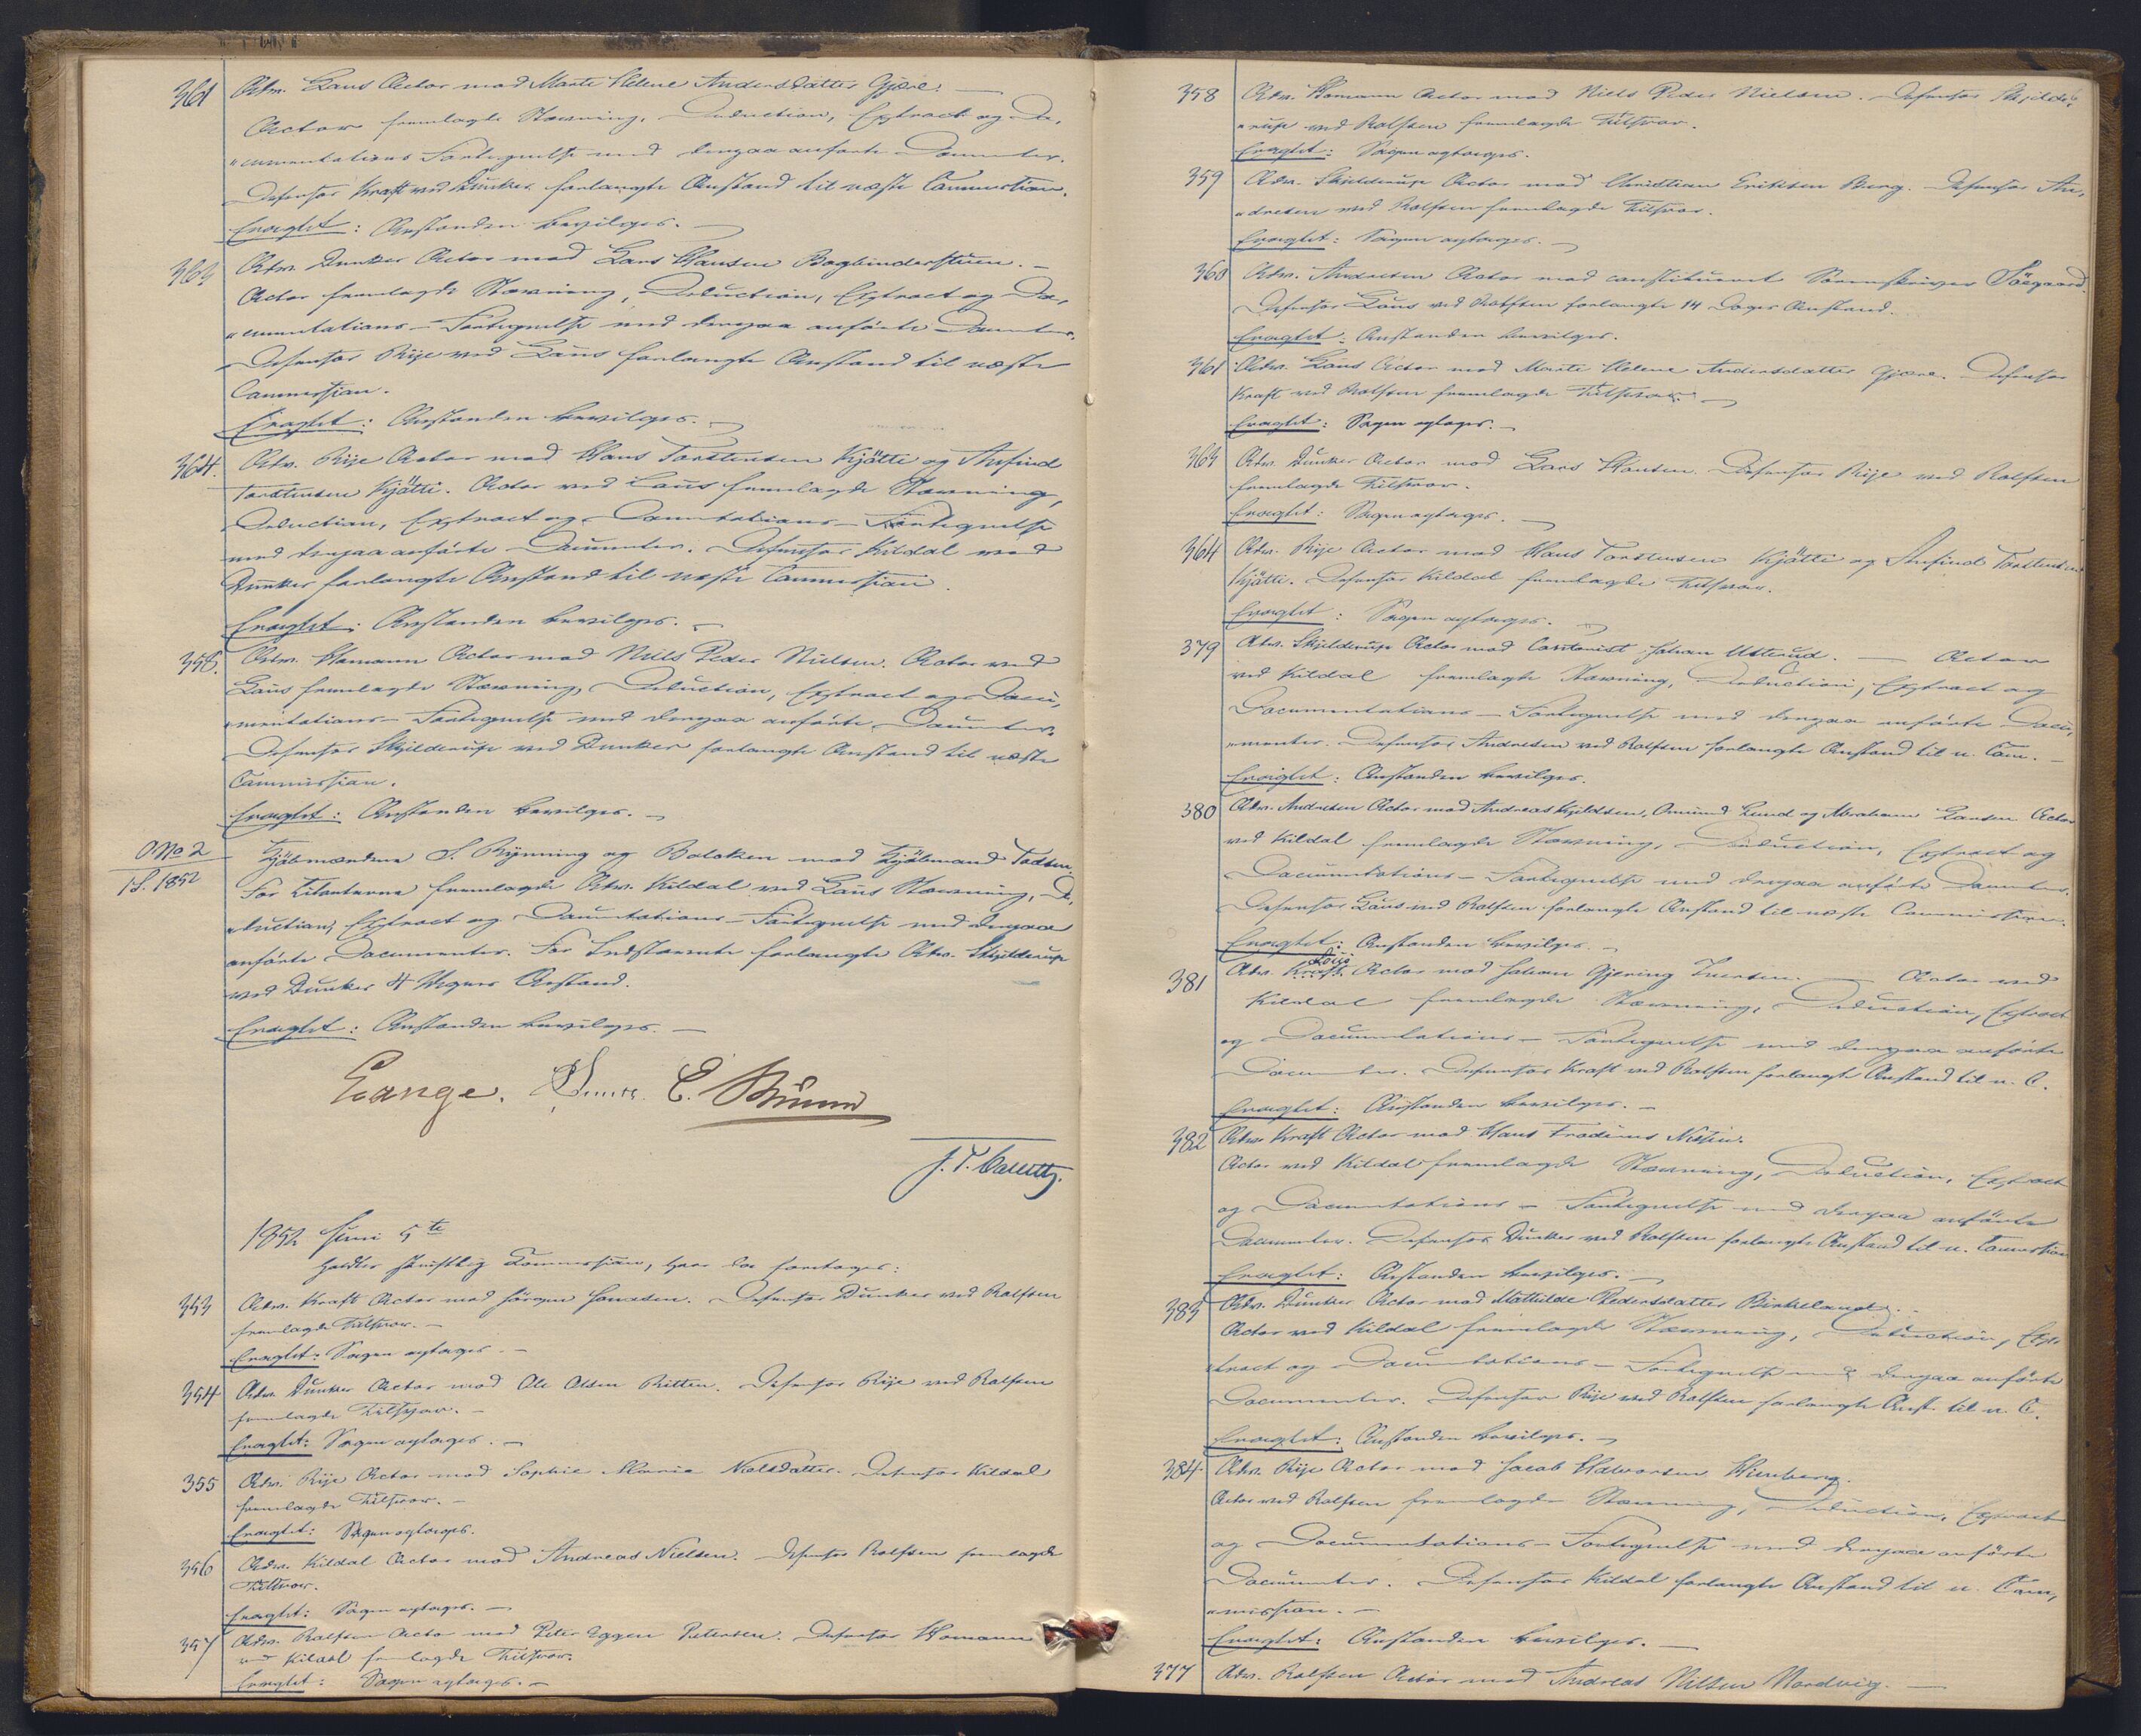 361 Adv. Lous Actor mod Marte Helene Andersdatter Gjære. —
Actor fremlagde Stævning, Deduction, Extract og Do„
„cumentations Fortegnelse med derpaa anførte Documenter.
Defensor Kraft ved Dunker forlangte Anstand til næste Commission.
Eragtet: Anstanden bevilges. —
363 Adv. Dunker Actor mod Lars Hansen Bogbinderstuen. —
Actor fremlagde Stævning, Deduction, Extract og Do„
„cumentations-Fortegnelse med derpaa anførte Documenter.
Defensor Rije ved Lous forlangte Anstand til næste
Commission.
Eragtet: Anstanden bevilges. —
364. Adv. Rije Actor mod Hans Torstensen Kjøtte og Anfind
Torstensen Kjøtti. Actor ved Lous fremlagde Stævning,
Deduction, Extract og Documentations-Fortegnelse
med derpaa anførte Documenter. Defensor Kildal ved
Dunker forlangte Anstand til næste Commission.
Eragtet: Anstanden bevilges. —
358. Adv. Homann Actor mod Niels Peder Nielsen. Actor ved
Lous fremlagde Stævning, Deduction, Extract og Docu„
„mentations-Fortegnelse med derpaa anførte Documenter.
Defensor Skjelderup ved Dunker forlangte Anstand til næste
Commission.
Eragtet: Anstanden bevilges. —
No 2
1 S. 1852
Kjøbmændene S. Rynning og Balcken mod Kjøbmand Todsen.
For Citanterne fremlagde Adv. Kildal ved Lous Stævning, De„
„duction, Extract og Documentations-Fortegnelse med derpaa
anførte Documenter. For Indstævnte forlangte Adv. Skjelderup
ved Dunker 4 Ugers Anstand.
Eragtet: Anstanden bevilges. —
Lange. C.
J. T.
1852 Juni 5te
holdtes skriftlig Commission, hvor da foretoges:
353 Adv. Kraft Actor mod Jørgen Jonassen. Defensor Dunker ved Rolfsen
fremlagde Tilsvar. —
Eragtet: Sagen optages. —
354 Adv. Dunker Actor mod Ole Olsen Ritten. Defensor Rije ved Rolfsen
fremlagde Tilsvar. —
Eragtet: Sagen optages. —
355 Adv. Rije Actor mod Sophie Marie Nielsdatter. Defensor Kildal
fremlagde Tilsvar. —
Eragtet: Sagen optages.
356 Adv. Kildal Actor mod Andreas Nielsen. Defensor Rolfsen fremlagde
Tilsvar.
Eragtet: Sagen optages. —
357 Adv. Rolfsen Actor mod Peter Eggen Petersen. Defensor Homann
ved Kildal fremlagde Tilsvar.
Eragtet: Sagen optages. —
358 Adv. Homann Actor mod Niels Peder Nielsen. Defensor Skjelde„
„rup ved Rolfsen fremlagde Tilsvar.
Eragtet: Sagen optages.
359 Adv. Skjelderup Actor mod Christian Eriksen Berg. Defensor An„
„dresen ved Rolfsen fremlagde Tilsvar.
Eragtet: Sagen optages. —
360 Adv. Andresen Actor mod constitueret Sorenskriver Søegaard.
Defensor Lous ved Rolfsen forlangte 14 Dages Anstand.
Eragtet: Anstanden bevilges.
361 Adv. Lous Actor mod Marte Helene Andersdatter Gjære. Defensor
Kraft ved Rolfsen fremlagde Tilsvar. —
Eragtet: Sagen optages. —
363 Adv. Dunker Actor mod Lars Hansen. Defensor Rije ved Rolfsen
fremlagde Tilsvar.
Eragtet: Sagen optages. —
364 Adv. Rije Actor mod Hans Torstensen Kjøtti og Anfind Torstensen
Kjøtti. Defensor Kildal fremlagde Tilsvar.
Eragtet: Sagen optages. —
379 Adv. Skjelderup Actor mod Cantonist Johan Utterud. — Actor
ved Kildal fremlagde Stævning, Deduction, Extract og
Documentations-Fortegnelse med derpaa anførte Docu„
„menter. Defensor Andresen ved Rolfsen forlangte Anstand til n. Com. —
Eragtet: Anstanden bevilges.
380 Adv. Andresen Actor mod Andreas Kjeldsen, Omund Lund og Abraham Larsen. Actor
ved Kildal fremlagde Stævning, Deduction, Extract og
Documentations-Fortegnelse med derpaa anførte Documenter.
Defensor Lous ved Rolfsen forlangte Anstand til næste Commission.
Eragtet: Anstanden bevilges. —
381 Adv. Kraft Lous Actor mod Johan Gjering Iversen. — Actor ved
Kildal fremlagde Stævning, Deduction, Extract
og Documentations-Fortegnelse med derpaa anførte
Documenter. Defensor Kraft ved Rolfsen forlangte Anstand til n. C.
Eragtet: Anstanden bevilges. —
382 Adv. Kraft Actor mod Hans Frodinus Nielsen.
Actor ved Kildal fremlagde Stævning, Deduction, Extract
og Documentations-Fortegnelse med derpaa anførte
Documenter. Defensor Dunker ved Rolfsen forlangte Anstand til n. Commission
Eragtet: Anstanden bevilges. —
383 Adv. Dunker Actor mod Mathilde Pedersdatter Birkeland. —
Actor ved Kildal fremlagde Stævning, Deduction, Ex„
„tract og Documentations-Fortegnelse med derpaa anførte
Documenter. Defensor Rije ved Rolfsen forlangte Anst. til n. C.
Eragtet: Anstanden bevilges. —
384 Adv. Rije Actor mod Jacob Halvorsen Wienberg.
Actor ved Rolfsen fremlagde Stævning, Deduction, Extract
og Documentations-Fortegnelse med derpaa anførte
Documenter. Defensor Kildal forlangte Anstand til n. Com„
„mission. —
Eragtet: Anstanden bevilges. —
377 Adv. Rolfsen Actor mod Andreas Nilsen Nordvig. —